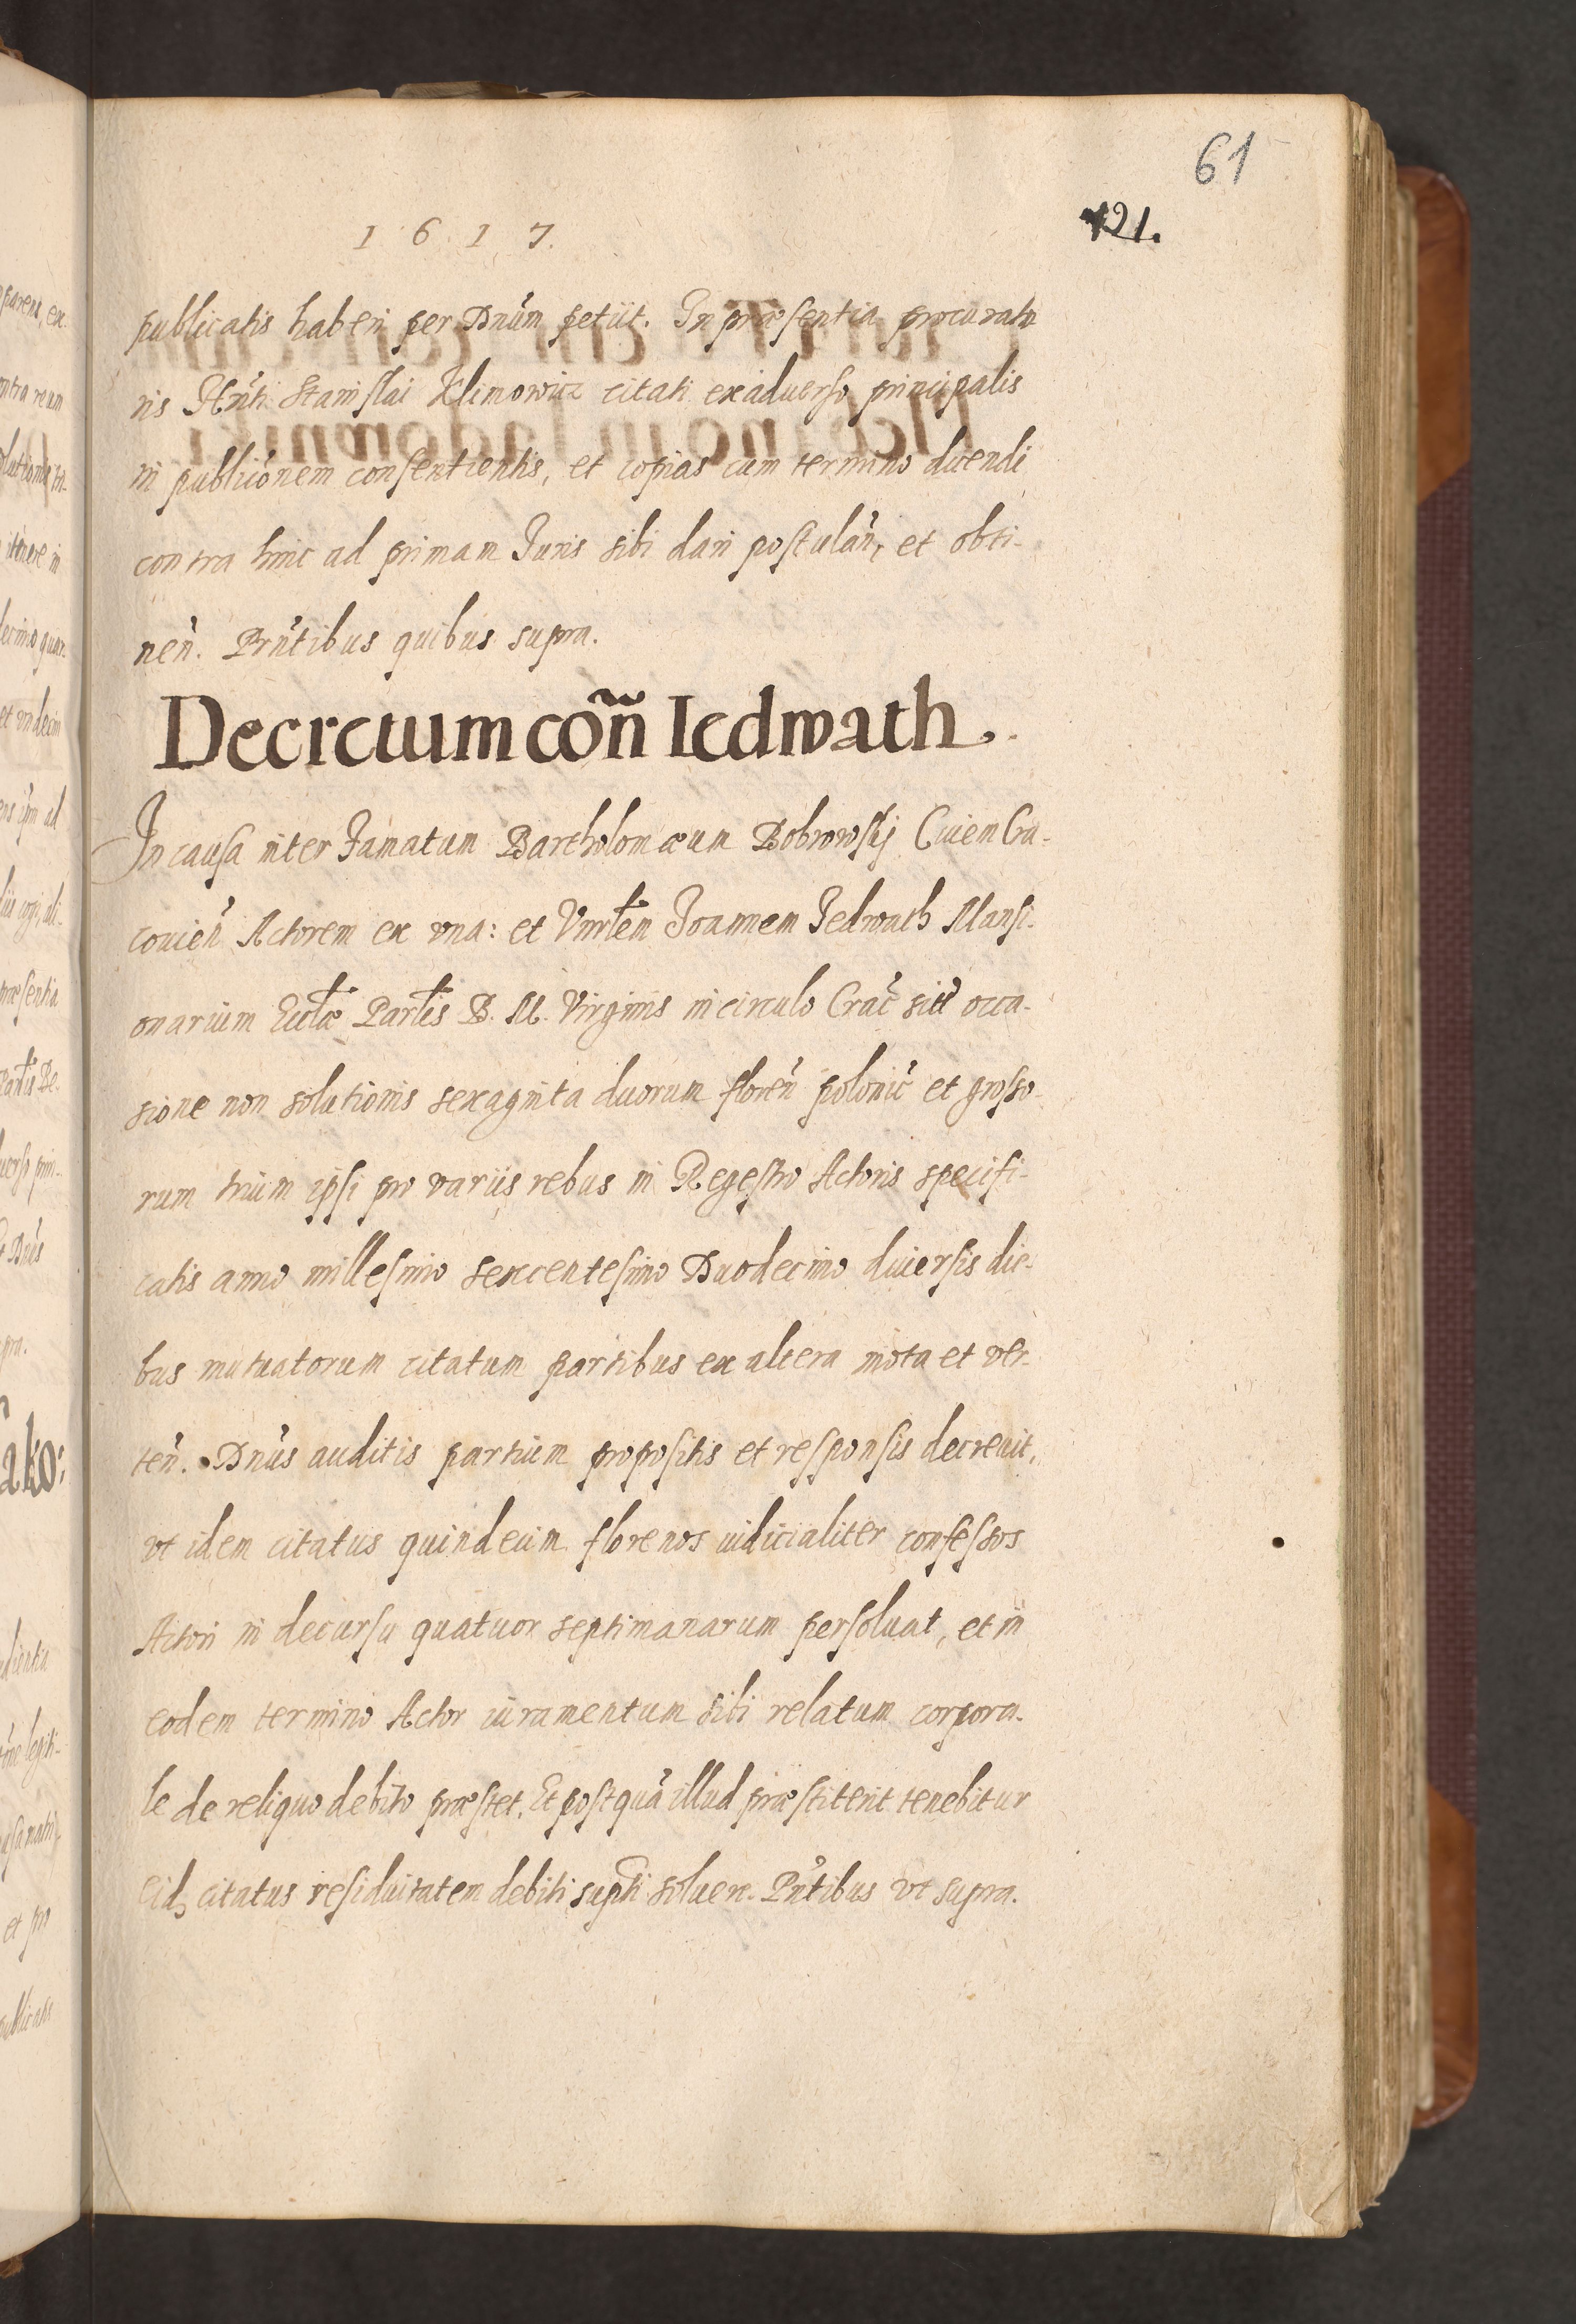 61
121.
1 6 1 7.
publicatis haberi per Dnum petiit. In præsentia procurato
ris Hnti Stanislai Klimowicz citati exaduerso principalis
in publiconem consentientis, et copias cum termino dicendi
contra hinc ad primam Iuris sibi dari postulan, et obti-
nen. Prntibus quibus supra.
Decretum con Iedwath.
In causa inter Famatum Bartholomæum Bobrowskj Ciuem Cra-
couien Actorem ex vna: et Vnrlem Joannem Jedwath Mansi-
onarium Ecclæ Parlis B. M. Virginis in circulo Crac sitæ occa-
sione non solutionis sexaginta duorum floren polonic et grosso-
rum trium ipsi pro variis rebus in Regestro Actoris specifi-
catis anno millesimo sexcentesimo Duodecimo diuersis die-
bus mutuatorum citatum partibus ex altera mota et ver-
ten. Dnus auditis partium propositis et responsis decreuit,
vt idem citatus quindecim florenos iudicialiter confessos
Actori in decursu quatuor septimanarum persoluat, et in
eodem termino Actor iuramentum sibi relatum corpora-
le de reliquo debito præstet. Et postqua illud præstiterit tenebitur
eid citatus residuitatem debiti supti soluere. Pntibus vt supra.